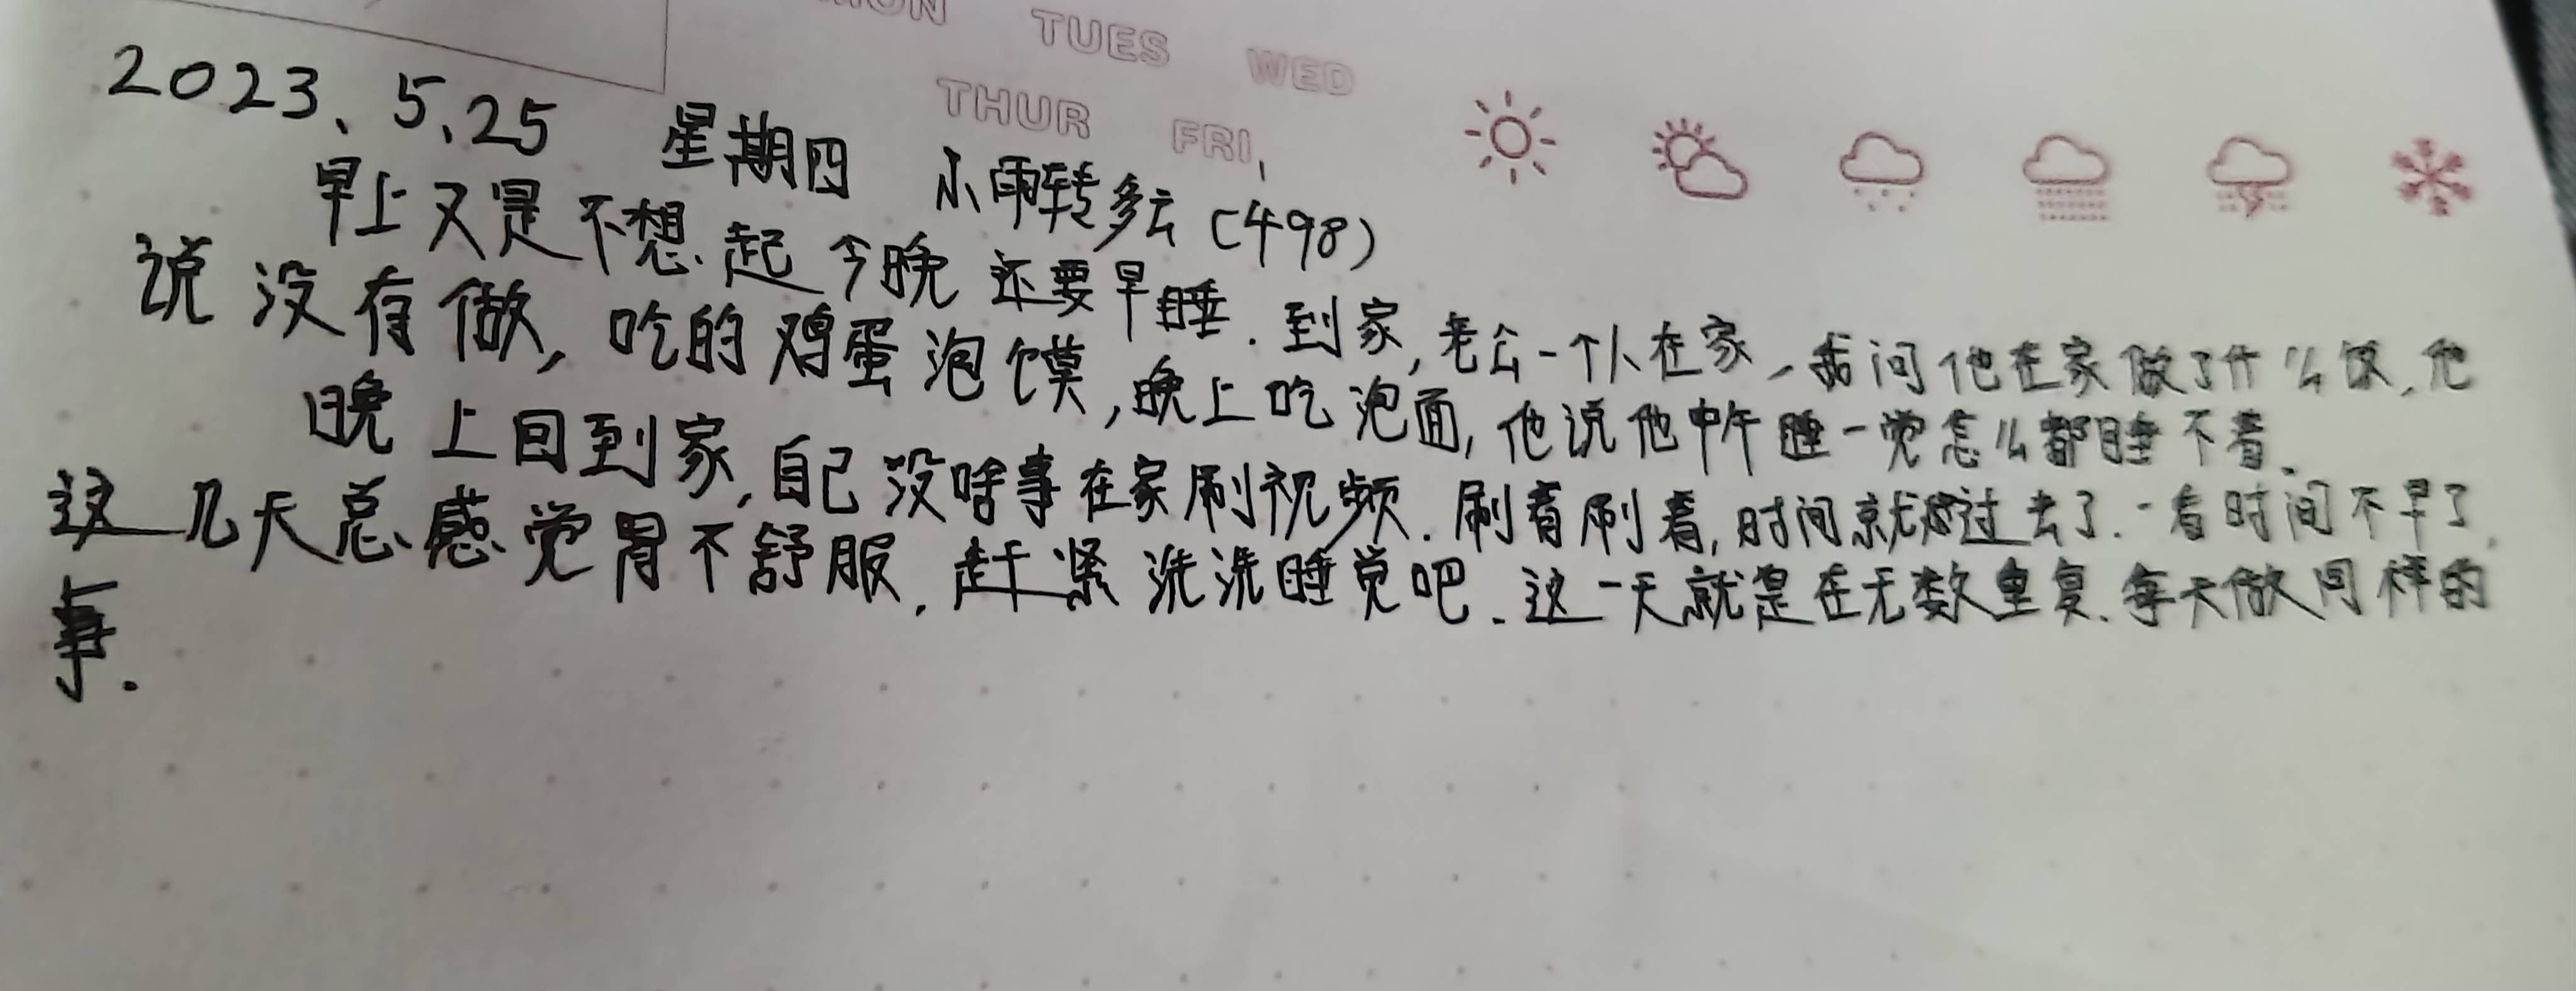 MON TUES WED
THUR FRI
2023、5、25 星期四 小雨转多云(498)
早上又是不想起今晚还要早睡.到家,老公一个人在家,我问他在家做了什么饭,他
说没有做,吃的鸡蛋泡馍,晚上吃泡面,他说他中午睡一觉怎么都睡不着.
晚上回到家,自己没啥事在家刷视频.刷着刷着,时间就过去了.一看时间不早了,
这几天总感觉胃不舒服,赶紧洗洗睡觉吧.这一天就是在无数重复.每天做同样的
事.